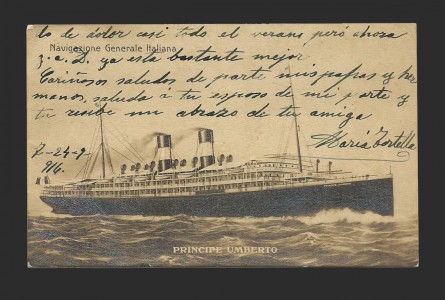 lo de dolor casi todo el verans peró ahora
Navigazione Generale Italiana
g.a.D. ya esta bastante mejor
Cariñosos saludos de parte mis papas y her
manos, saluda á tu esposo de mi parte y
tu recibe un abrazo de tu amiga
Maria Tortella
7-24-9
916.
PRINCIPE UMBERTO